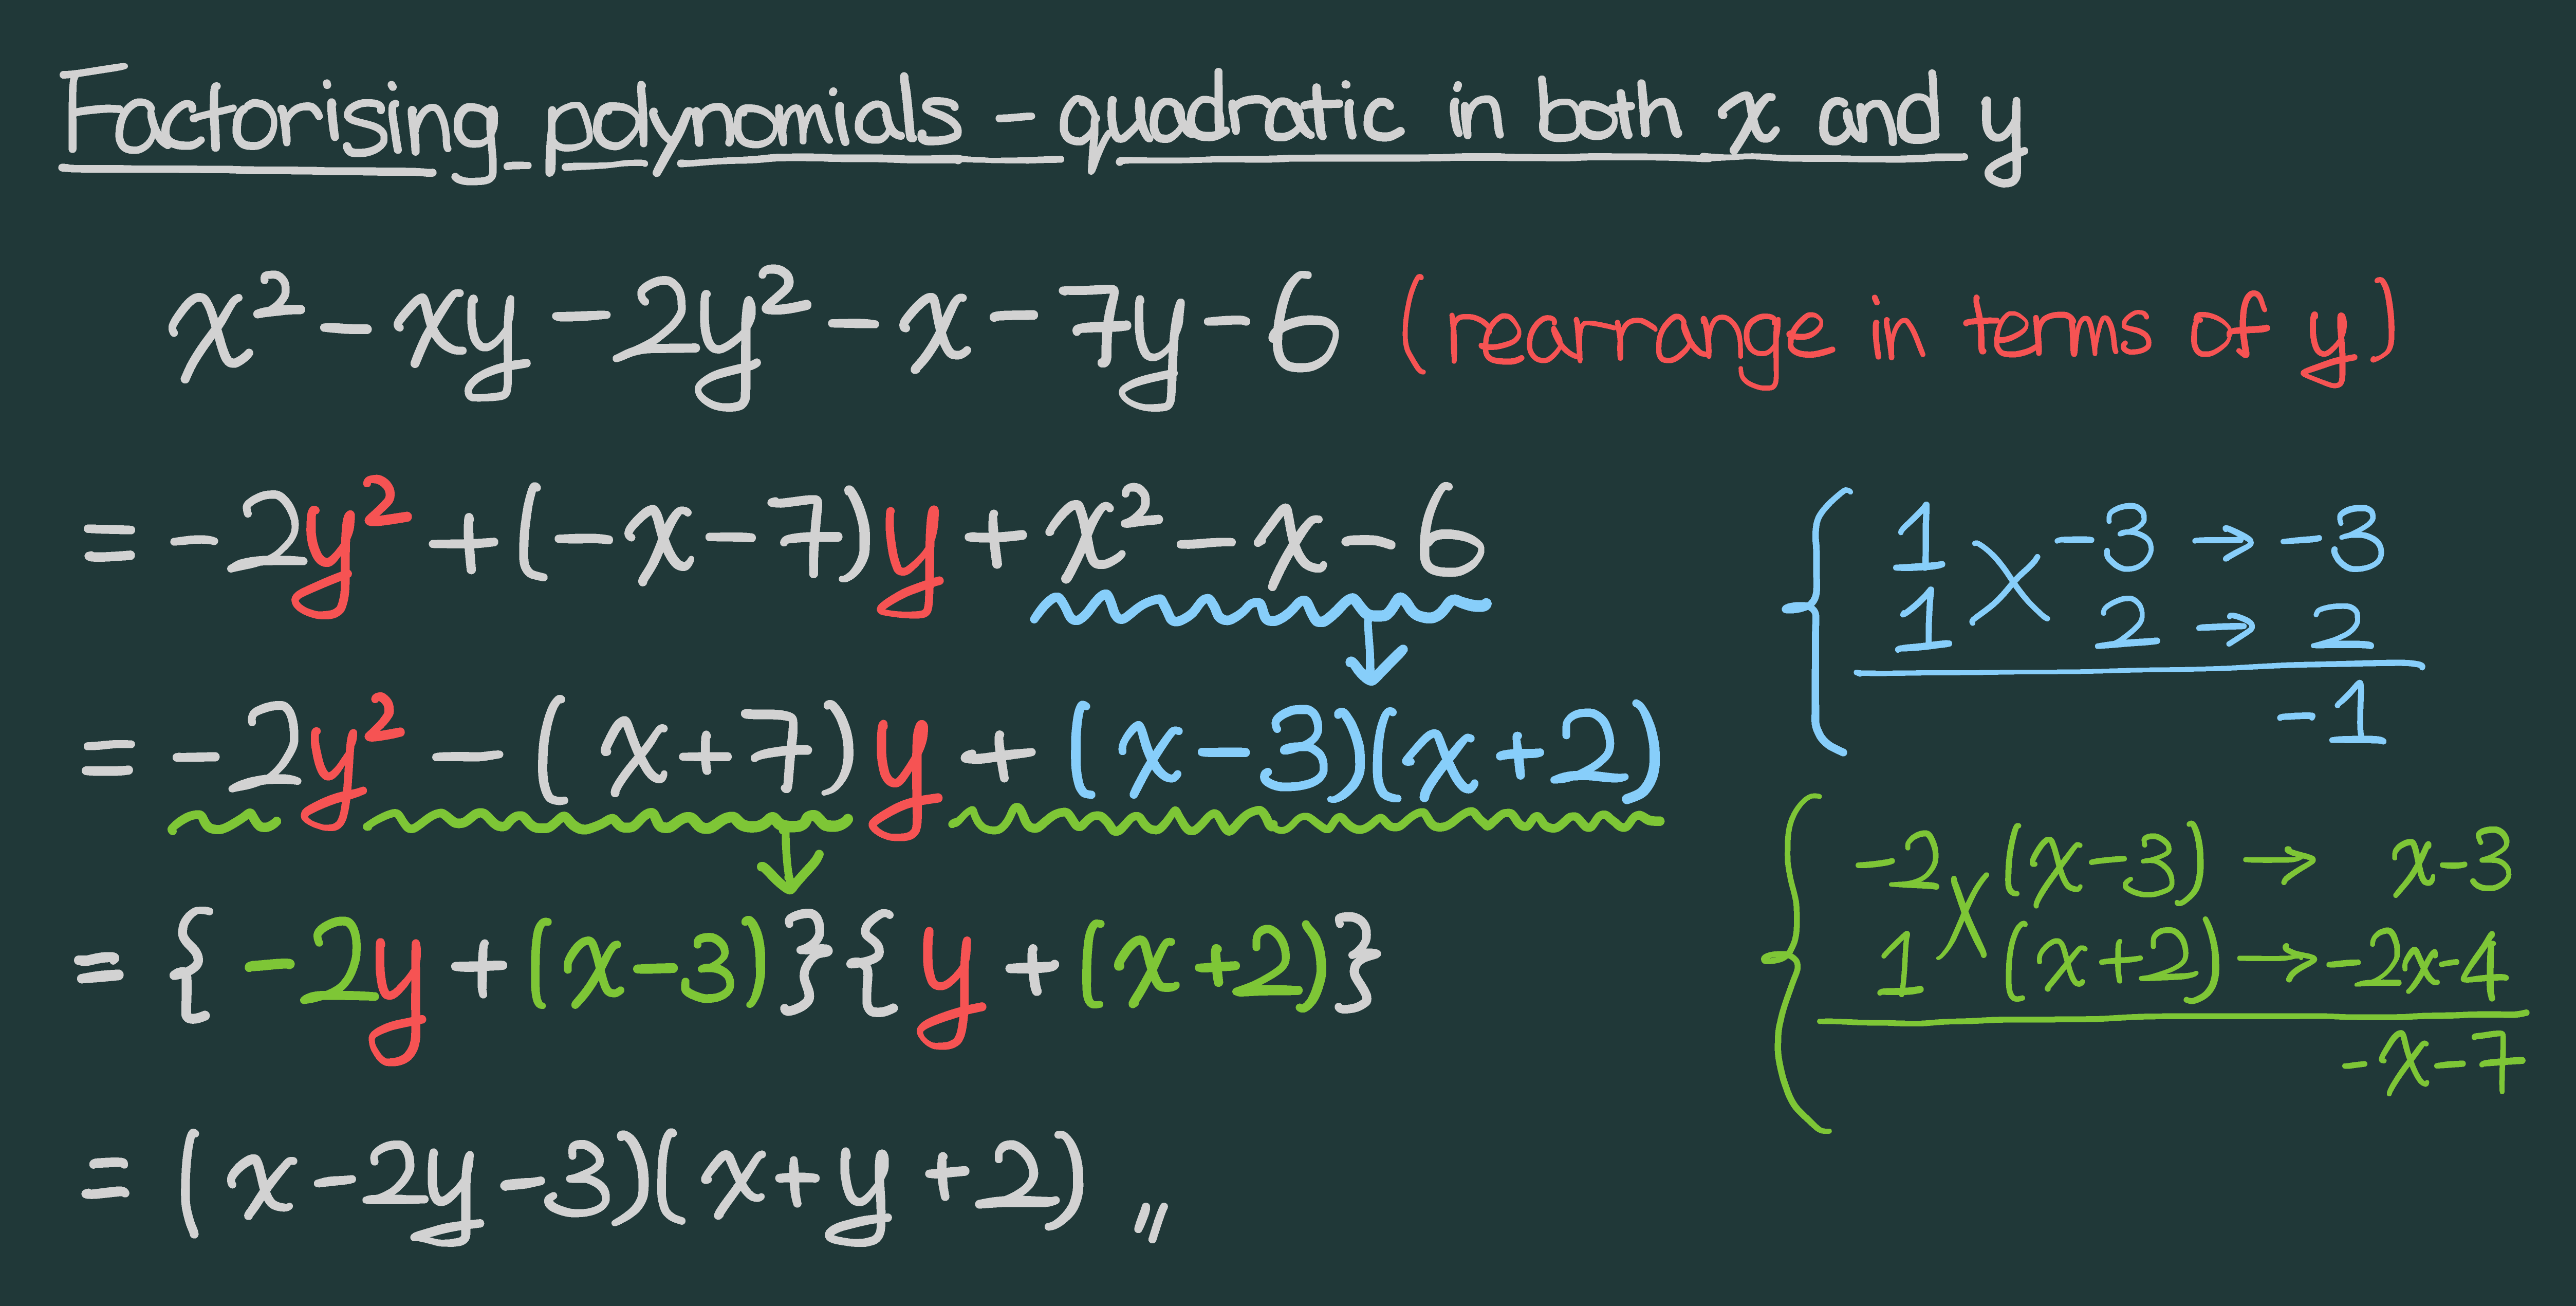 Factorising polynomials - quadratic in both x and y
x² - xy - 2y² - x - 7y - 6 (rearrange in terms of y)
= -2y² + (-x-7)y + x² - x - 6
= -2y² - (x+7)y + (x-3)(x+2)
= {-2y + (x-3)}{y + (x+2)}
= (x-2y-3)(x+y+2)〃
1 -3 → -3
1 2 → 2
-1
-2 (x-3) → x-3
1 (x+2) → -2x-4
-x-7